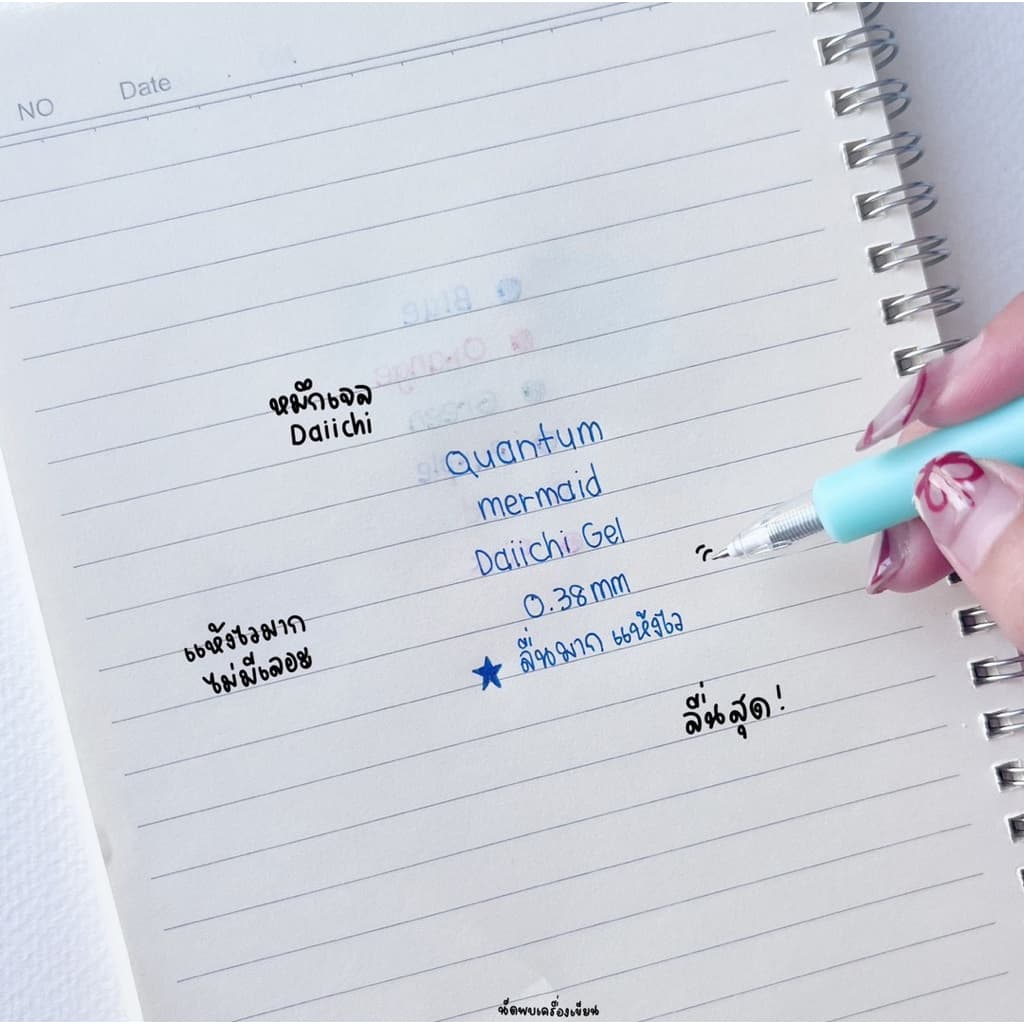 NO Date
หมึกเจล
Daiichi
Quantum
mermaid
Daiichi Gel
0.38mm
ลื่นมาก แห้งไว
แห้งไวมาก
ไม่มีเลอะ
ลื่นสุด!
นัดพบเครื่องเขียน
Blue
Orange
Green